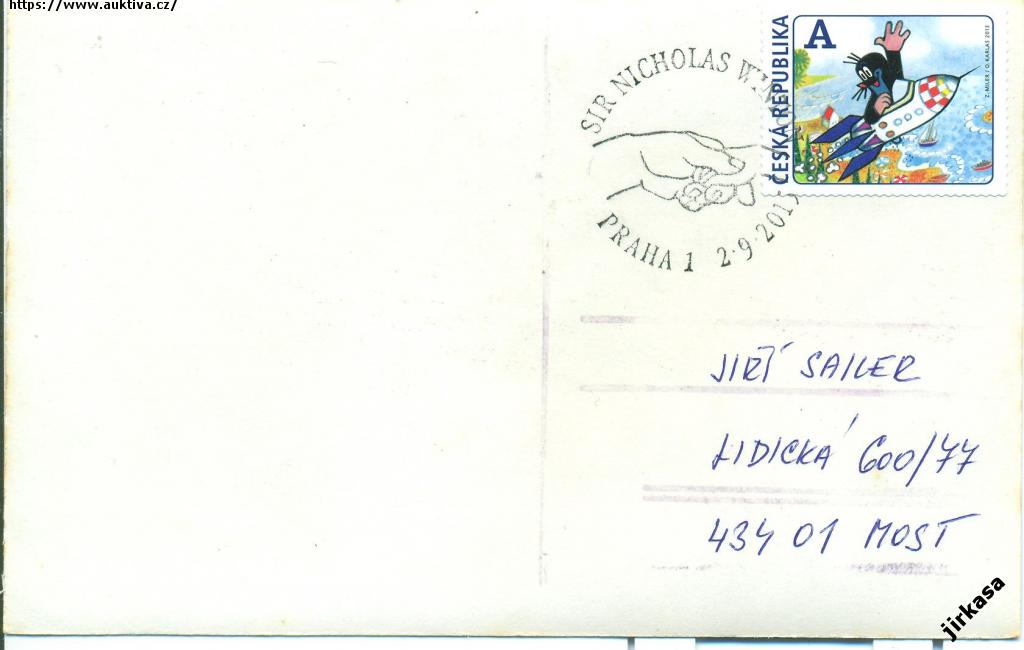 https://www.auktiva.cz/
SIR NICHOLAS
PRAHA 1 2.9.2015
ČESKÁ REPUBLIKA
A
Z. MILER / O. KARLAS 2013
JIŘÍ SAILER
LIDICKÁ 600/77
434 01 MOST
jirkasa